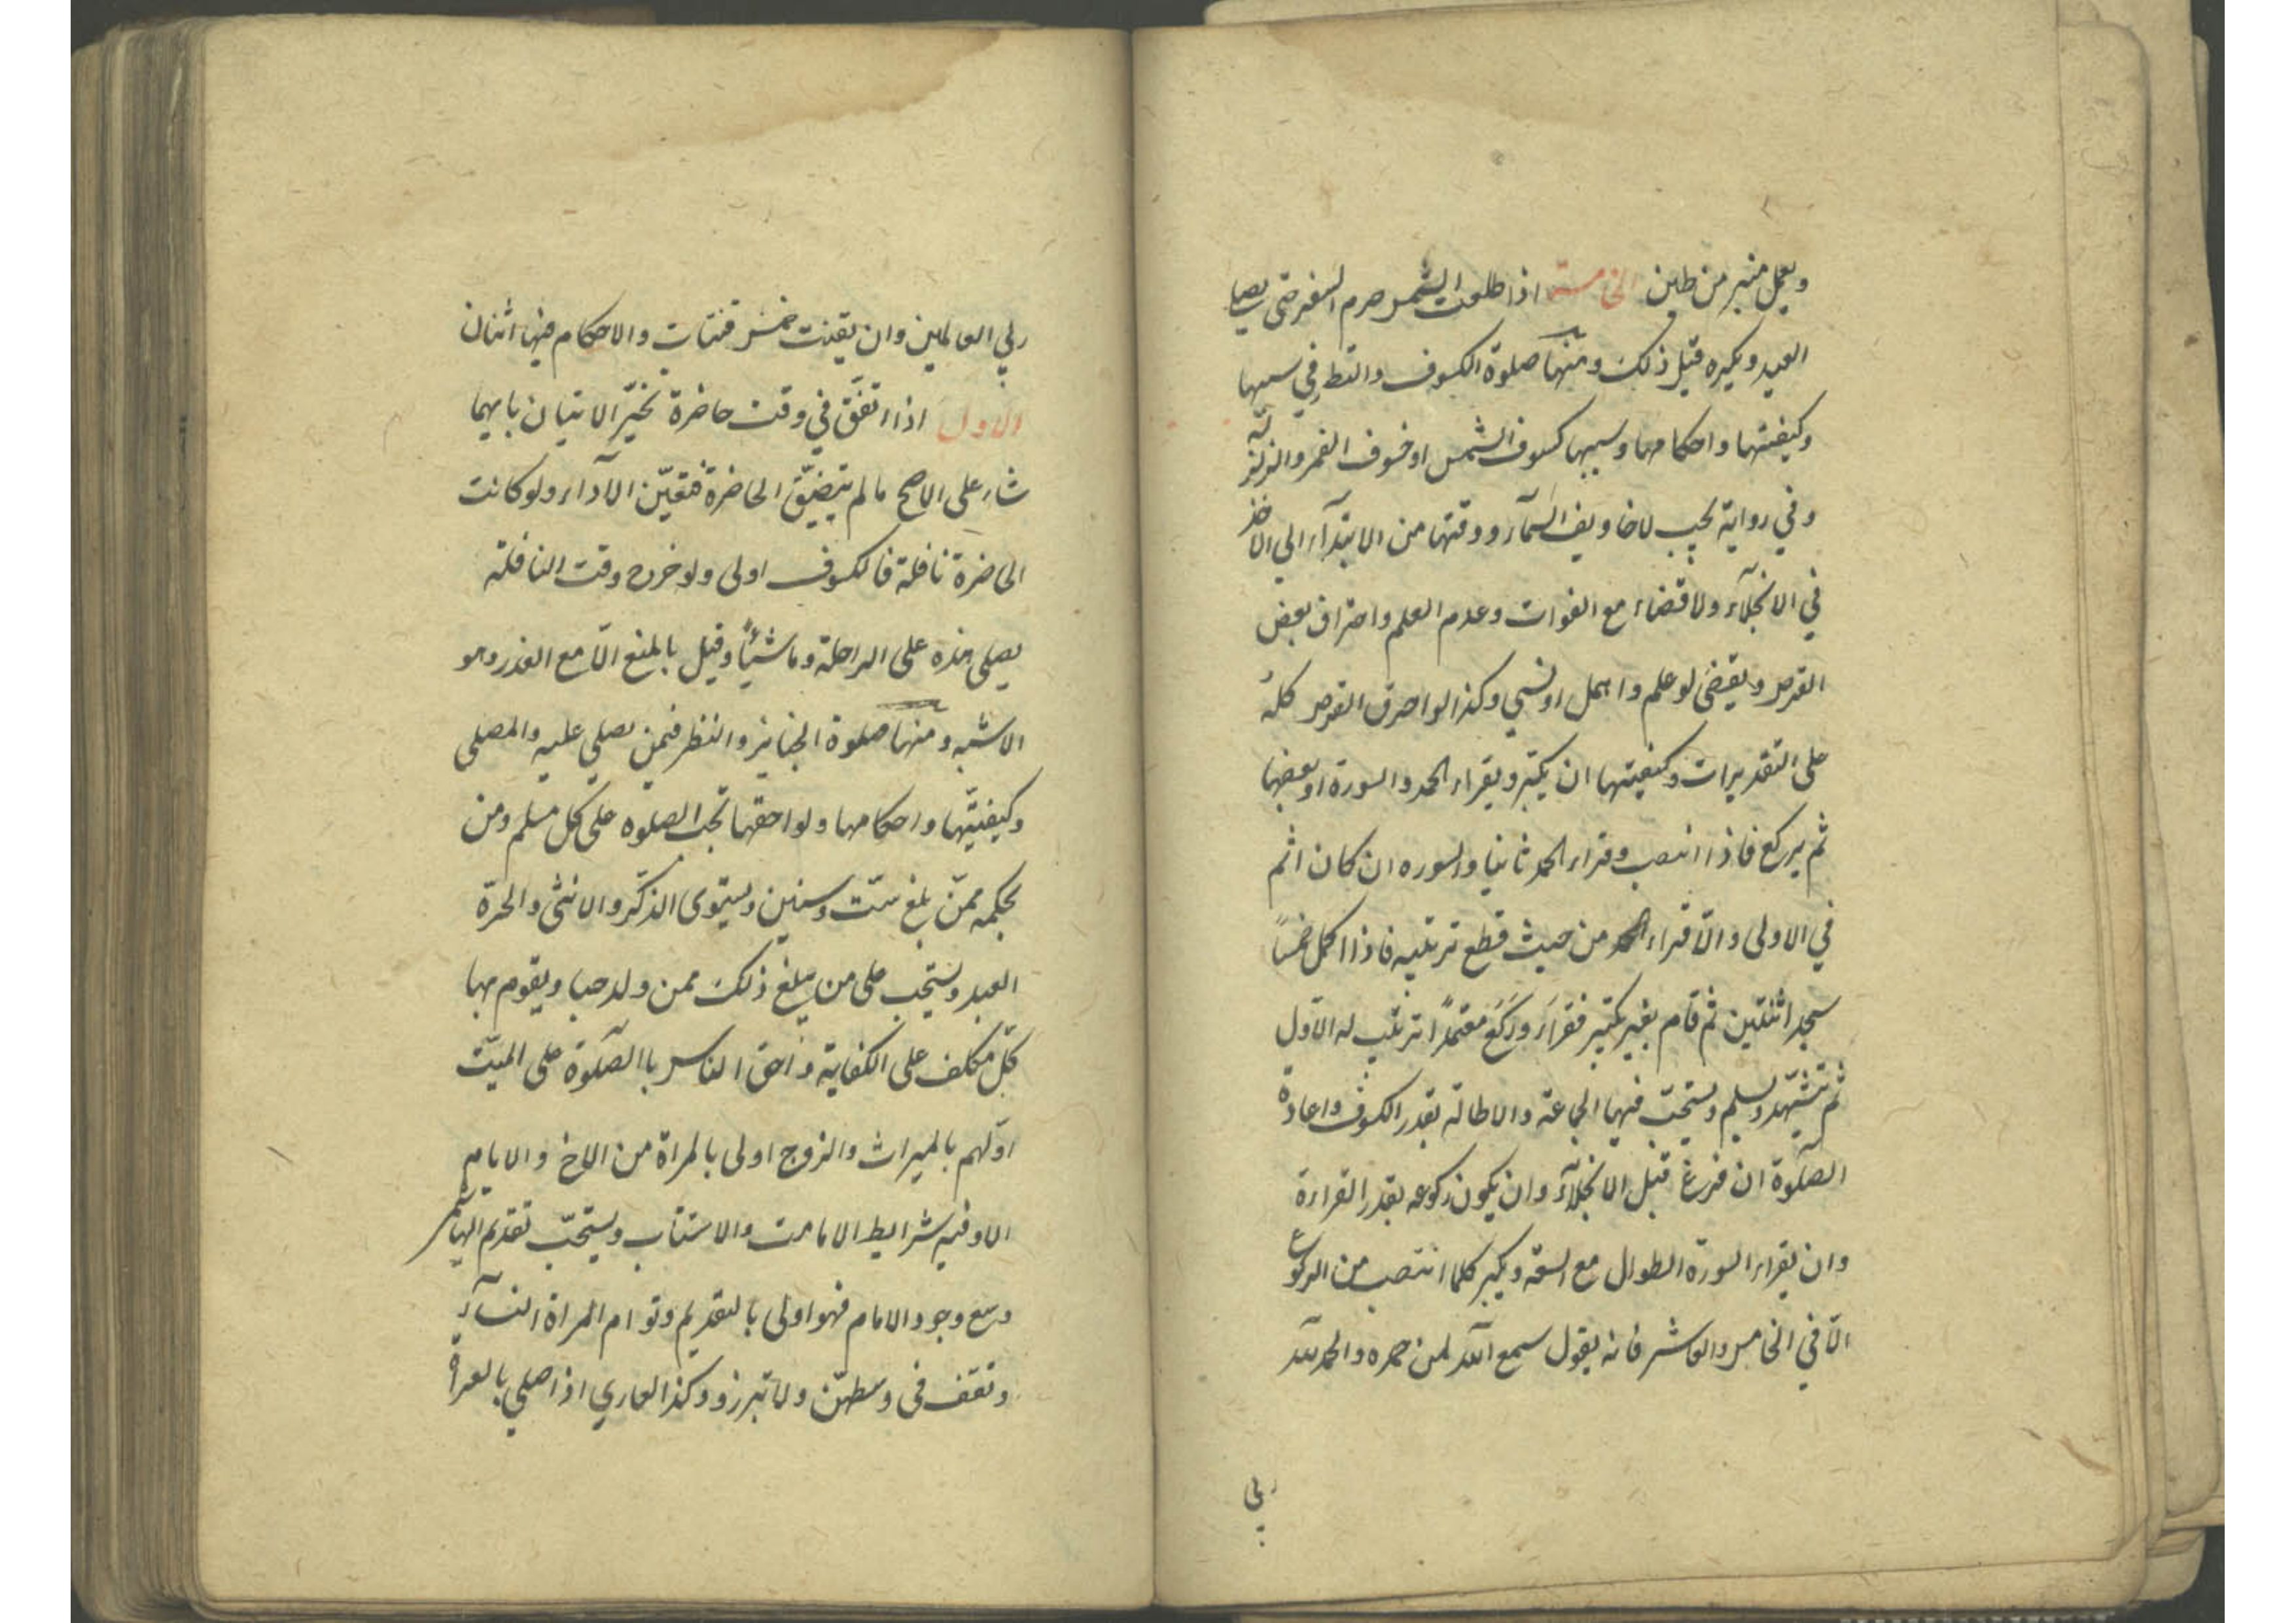 ويعمل منبر من طين الخامسة اذا طلعت الشمس حرم السفر حتى يصلي
العيد ويكره قبل ذلك ومنها صلوة الكسوف والنظر في سببها
وكيفيتها واحكامها وسببها كسوف الشمس او خسوف القمر والزلزلة
وفي رواية يجب لاخاويف السمآء ووقتها من الابتدآء الي الاخذ
في الانجلآء ولا قضاء مع الفوات وعدم العلم واحتراق بعض
القرص ويقضي لو علم واهمل او نسي وكذا لو احترق القرص كله
على التقديرات وكيفيتها ان يكبّر ويقراء الحمد والسورة او بعضها
ثم يركع فاذا انتصب وقراء الحمد ثانيا والسوره ان كان اثم
في الاولى والّا قراء الحمد من حيث قطع ترتيبه فاذا اكمل خمسًا
سجد اثنتين ثم قام بغير تكبير فقرأ وركع معتمدًا ترتيب له الاول
ثم تشهد وسلم ويستحبّ فيها الجماعة والاطالة بقدر الكسوف واعادة
الصلٓوة ان فرغ قبل الانجلآء وان يكون ركوعه بقدر القراءة
وان يقراء السورة الطوال مع السعة ويكبر كلما انتصب من الركوع
الّا في الخامس والعاشر فانه يقول سمع الله لمن حمده والحمد لله
ربي
ربي العالمين وان يقنت خمس قنتات والاحكام فيها اثنان
الاول اذا اتفقّ في وقت حاضرة تخيّر الاتيان بايهما
شاء على الاصح مالم تيضيّق الحاضرة فتعيّن الآداء ولو كانت
الحاضرة نافلة فالكسوف اولى ولو خرج وقت النافلة
يصلي هذه على الراحلة وماشيئًا وقيل بالمنع الّا مع العذر وهو
الاشبه ومنها صلوة الجنايز والنظر فيمن يصلي عليه والمصلي
وكيفيتّها واحكامها ولواحقها تجب الصلوه على كل مسلم ومن
بحكمه ممّن بلغ ستّ وسنين ويستوى الذكر والانثى والحرة
العبد ويستحب على من يبلغ ذلك ممن ولد حيا ويقوم بها
كل مكلف على الكفاية واحق الناس باالصلٓوة على الميّت
اوّلهم بالميراث والزوج اولى بالمراة من الاخ والايام
الاوفيه شرايط الامامت والاستتاب ويستحبّ تقديم الهاشمي
ومع وجود الامام فهو اولى بالتقديم وتوام المراة النسآء
وتقف في وسطهنّ ولا تبرز ووكذا العاري اذا صلي بالعراة